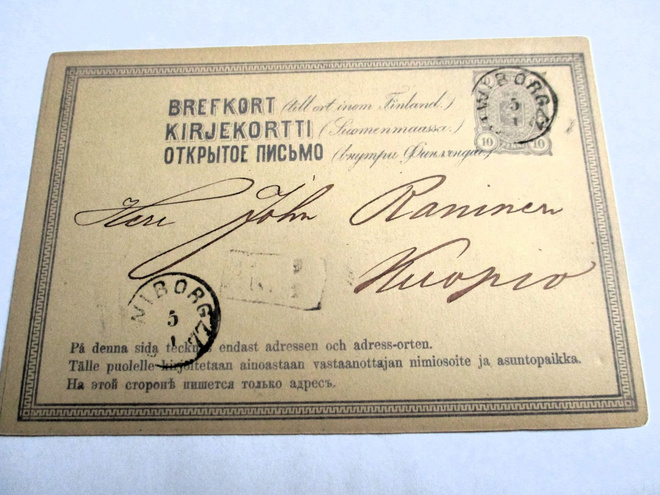 BREFKORT (till ort inom Finland.)
KIRJEKORTTI (Suomenmaassa.)
ОТКРЫТОЕ ПИСЬМО (внутри Финляндіи)
WIBORG
5
1
10 10
Herr John Raninen
Kuopio
WIBORG
5
1
77
På denna sida tecknas endast adressen och adress-orten.
Tälle puolelle kirjoitetaan ainoastaan vastaanottajan nimiosoite ja asuntopaikka.
На этой сторонѣ пишется только адресъ.